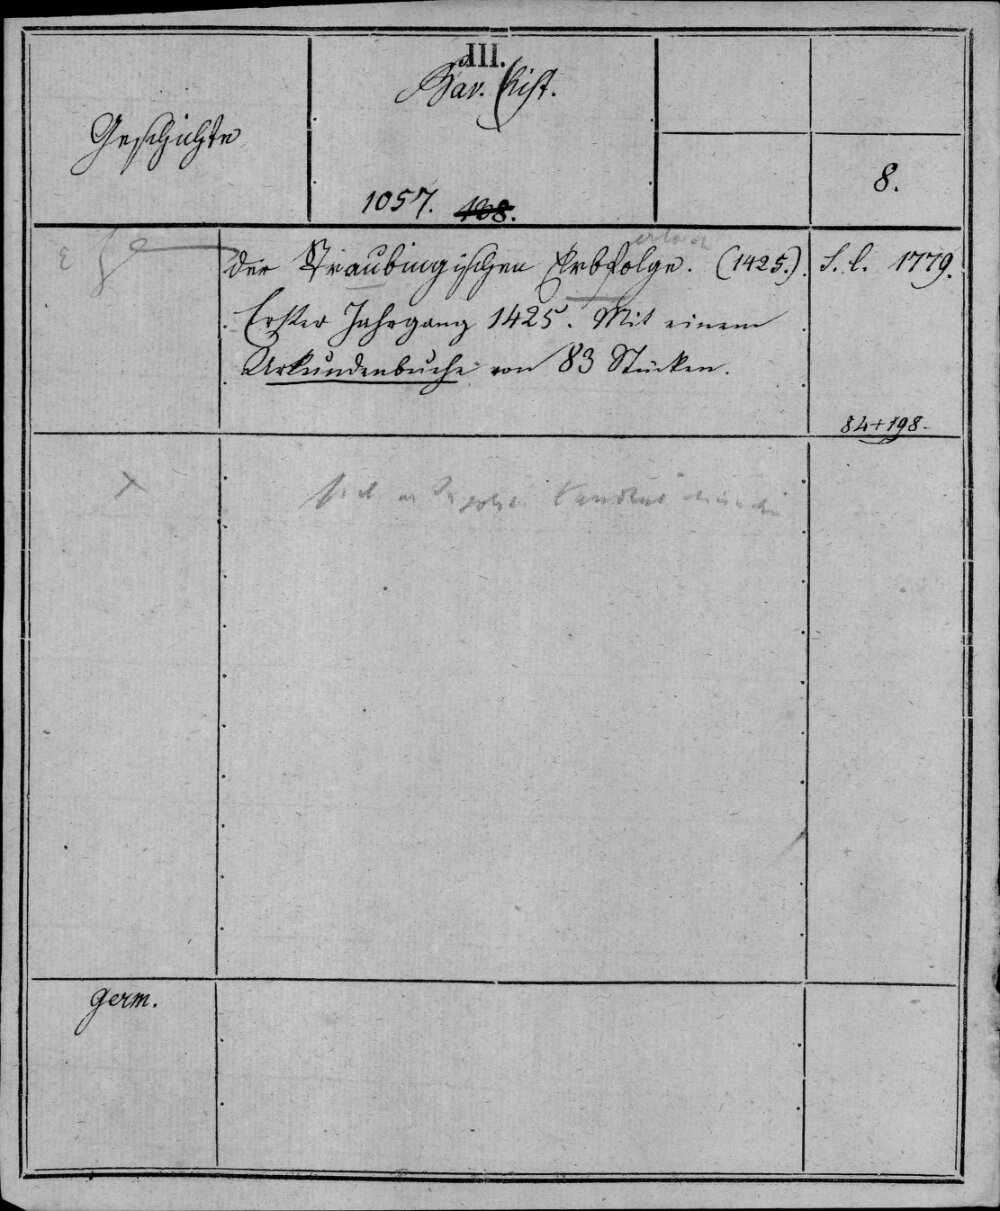 III.
Bav. hist.
Geschichte
8.
1057. 108.
der Straubingischen Erbfolge. (1425.) S. l. 1779.
Erster Jahrgang 1425. Mit einem
Urkundenbuche von 83 Stücken.
84+198.
germ.